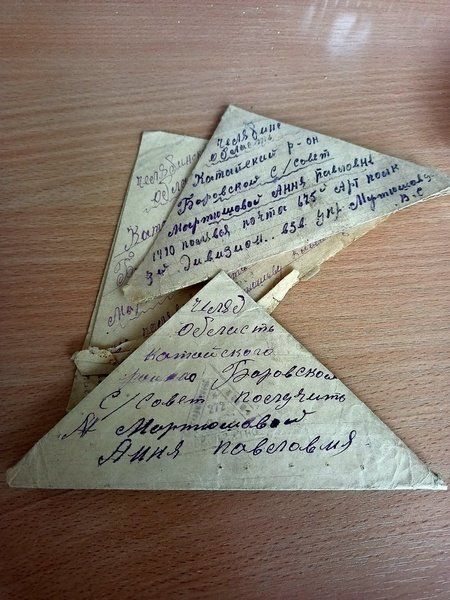 Челябинс
Область
Катайский р-он
Боровской С/совет
Мартюшовой Анне павловне
1410 полевая почта 675й Арт полк
3й дивизион.. взв. упр. Мутюшов
В-С
Челябинс
Облас
Ката
Бо
Ма
Челяб
область
Катайского
района Боровской
С/совет получить
Мартюшовой
Ання павловмя
272